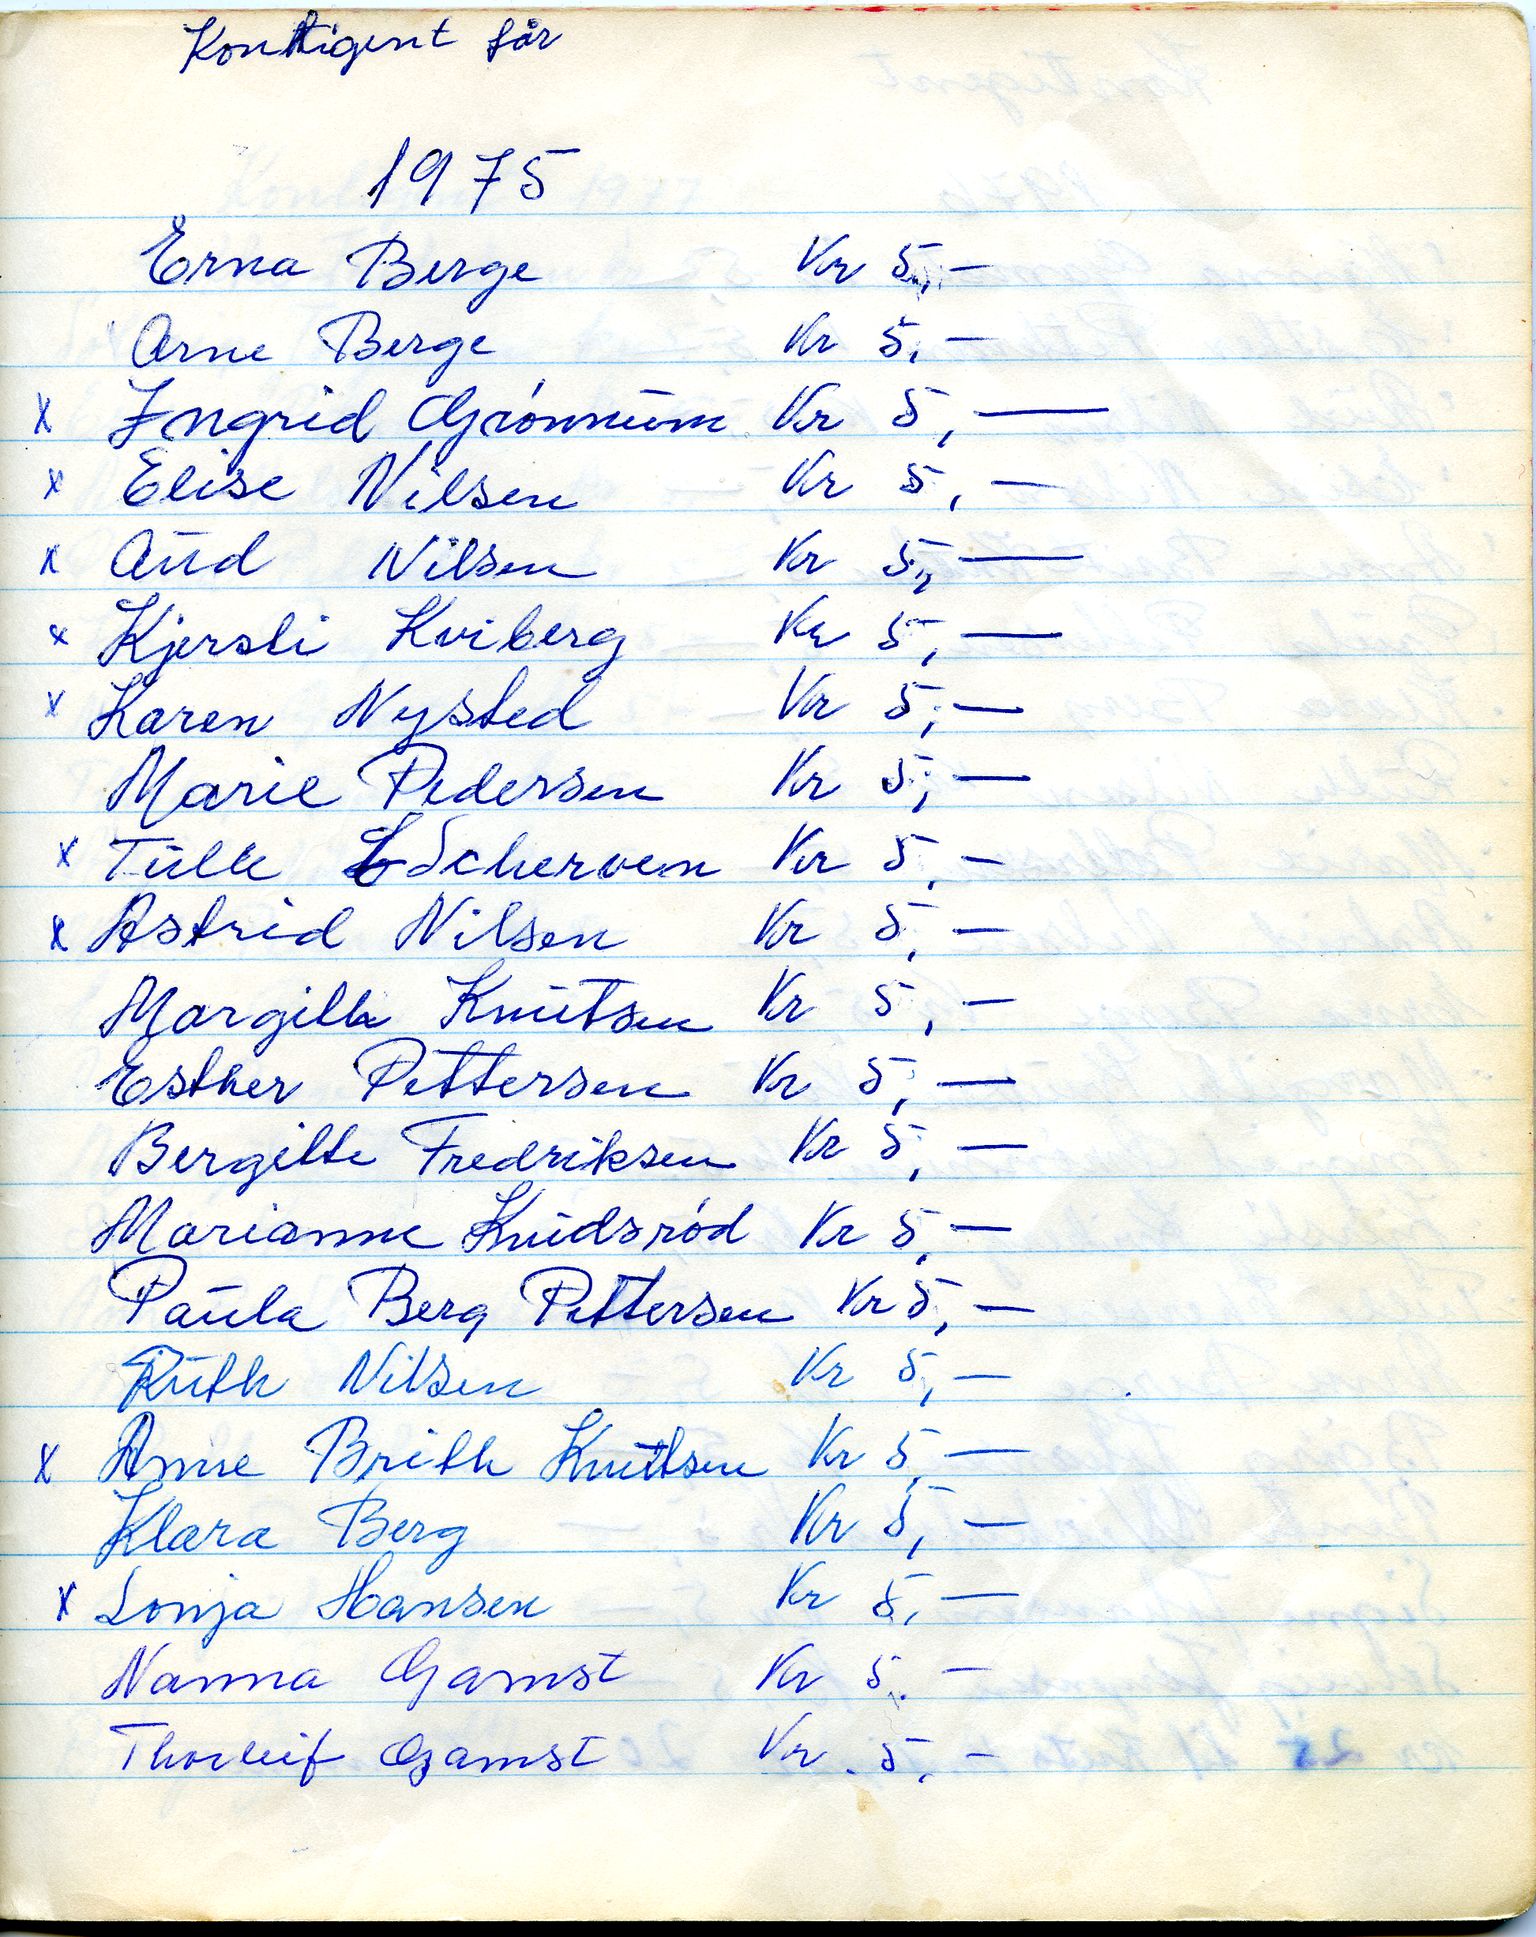 Kontigent får
1975
Erna Berge Kr 5,-
Arne Berge Kr 5,-
x Ingrid Grónnum Kr 5,-
x Elise Nilsen Kr 5,-
x Aud Nilsen Kr 5,-
x Kjersti Kviberg Kr 5,-
x Karen Nysted Kr 5,-
Marie Pedersen Kr 5,-
x Tulle Scherven Kr 5,-
x Astrid Nilsen Kr 5,-
Margith Knutsen Kr 5,-
Esther Pettersen Kr 5,-
Bergitte Fredriksen Kr 5,-
Marianne Knudsród Kr 5,-
Paula Berg Pettersen Kr 5,-
Ruth Nilsen Kr 5,-
x Anne Brith Knutsen Kr 5,-
Klara Berg Kr 5,-
x Sonja Hansen Kr 5,-
Nanna Gamst Kr 5,-
Thorleif Gamst Kr. 5,-